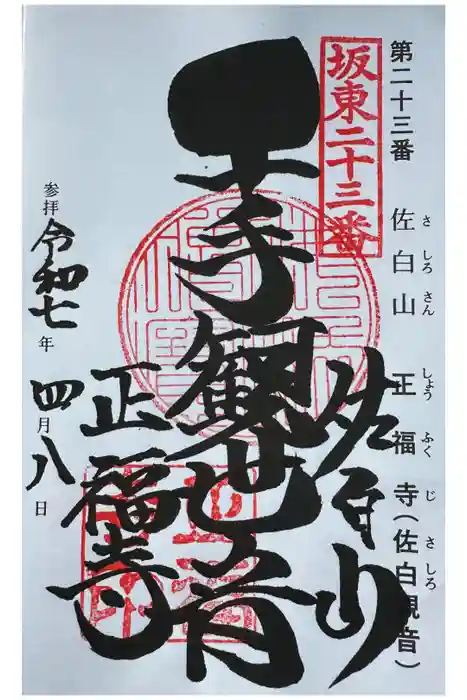 第二十三番 佐白山 正福寺(佐白観音)
さ しろ さん しょう ふく じ さしろ
坂東二十三番
佐白山
千手観世音
正福寺
参拝 令和七年 四月八日